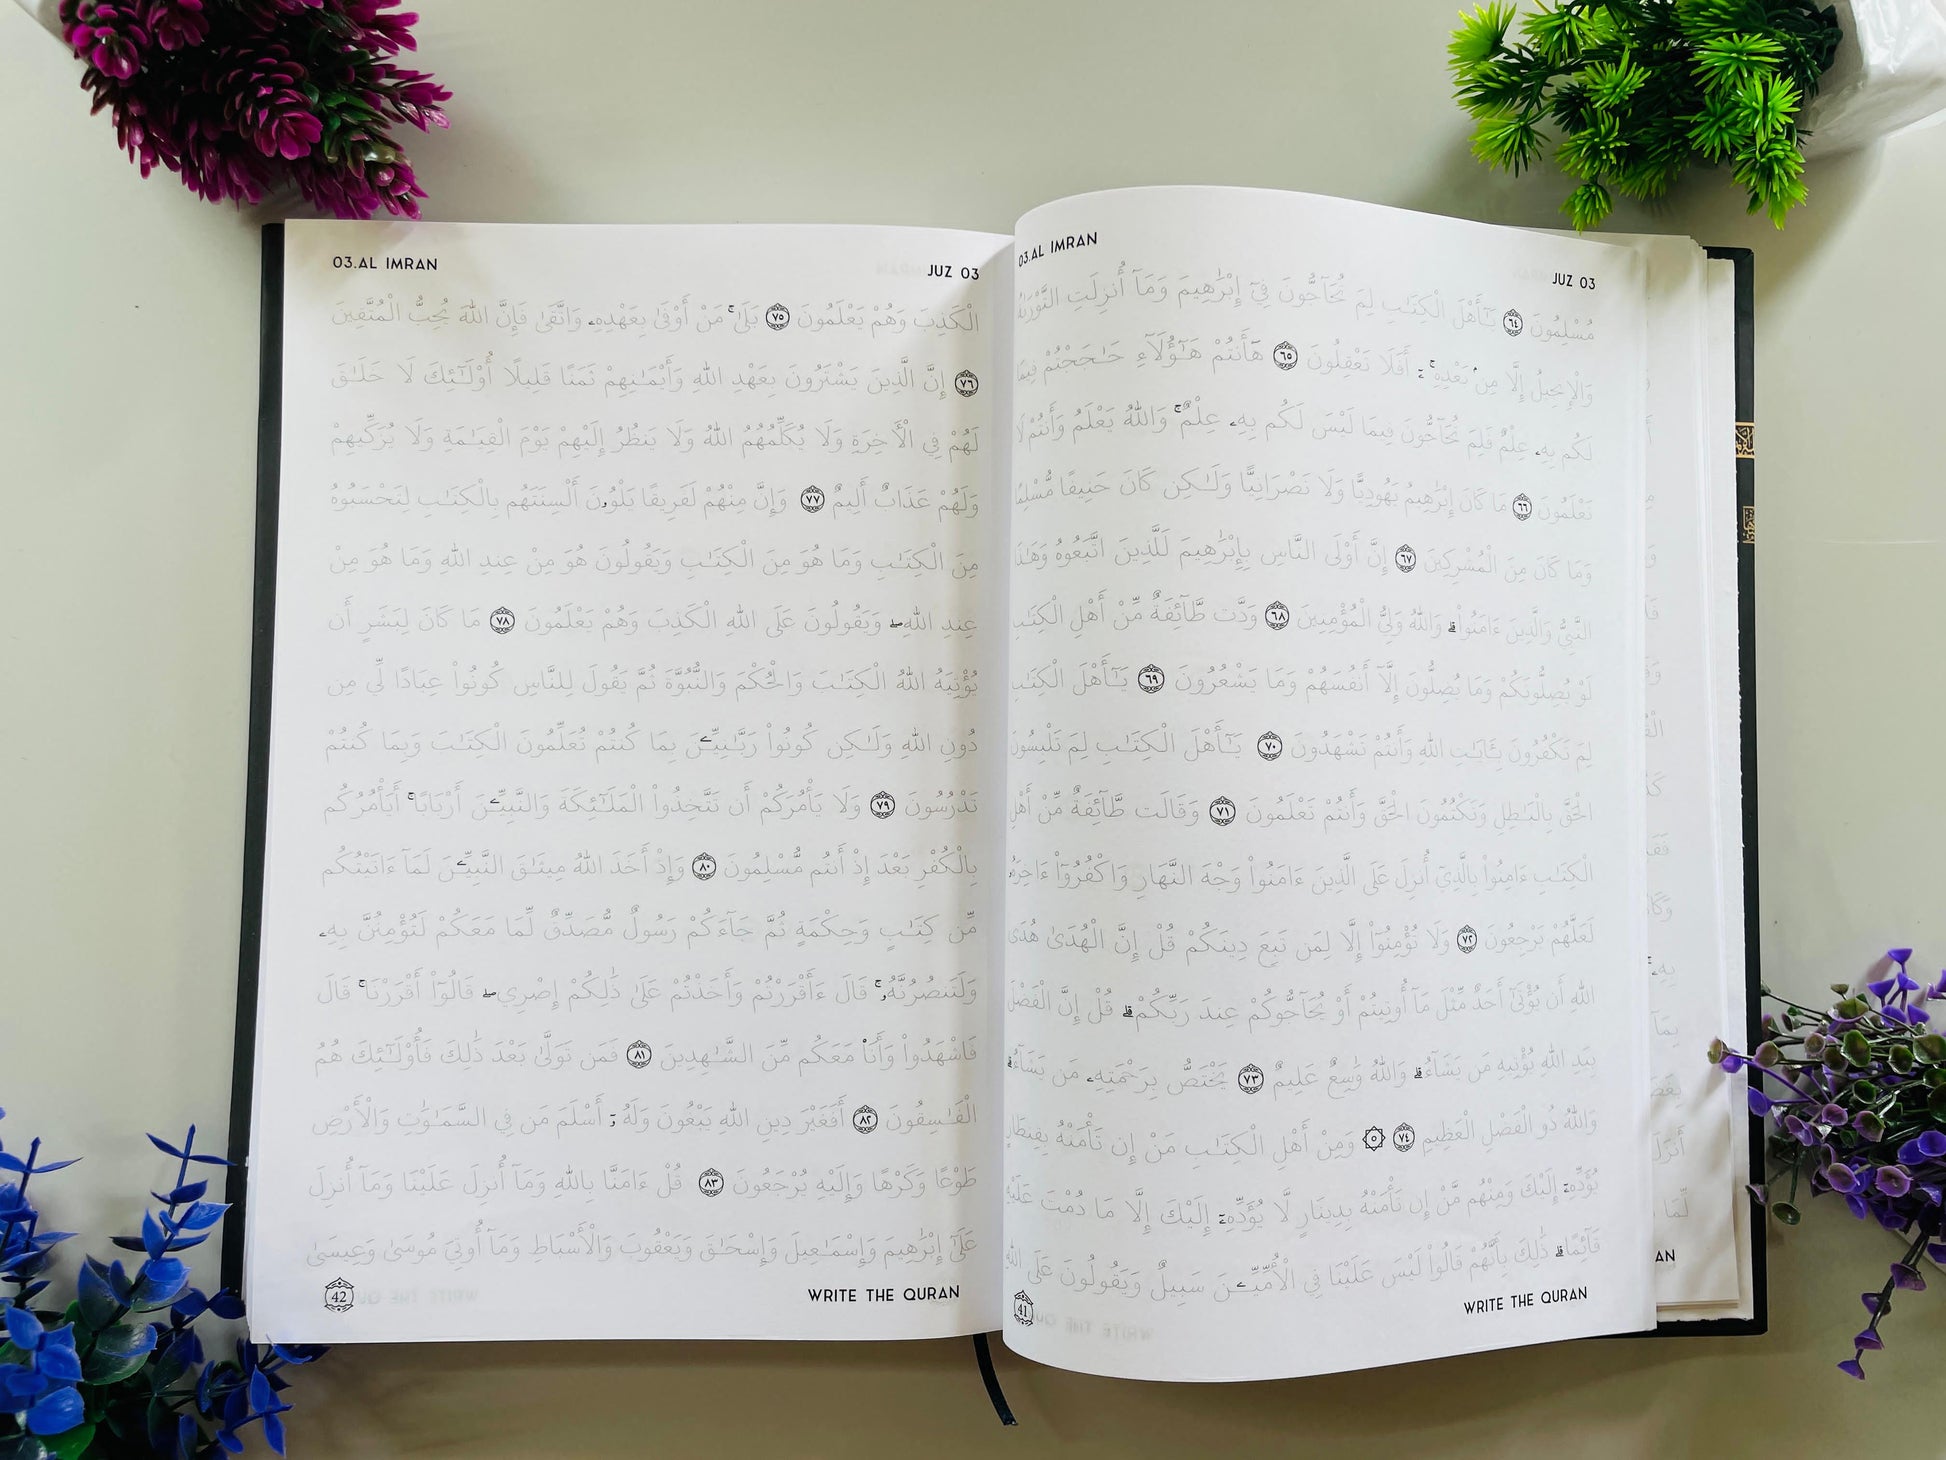 03.AL IMRAN
JUZ 03
مُسْلِمُونَ ٦٤ يَـٰٓأَهْلَ الْكِتَـٰبِ لِمَ تُحَآجُّونَ فِيٓ إِبْرَٰهِيمَ وَمَآ أُنزِلَتِ التَّوْرَىٰةُ
وَالْإِنجِيلُ إِلَّا مِنۢ بَعْدِهِۦٓ ۚ أَفَلَا تَعْقِلُونَ ٦٥ هَـٰٓأَنتُمْ هَـٰٓؤُلَآءِ حَـٰجَجْتُمْ فِيمَا
لَكُم بِهِۦ عِلْمٌ فَلِمَ تُحَآجُّونَ فِيمَا لَيْسَ لَكُم بِهِۦ عِلْمٌ ۚ وَاللَّهُ يَعْلَمُ وَأَنتُمْ لَا
تَعْلَمُونَ ٦٦ مَا كَانَ إِبْرَٰهِيمُ يَهُودِيًّا وَلَا نَصْرَانِيًّا وَلَـٰكِن كَانَ حَنِيفًا مُّسْلِمًا
وَمَا كَانَ مِنَ الْمُشْرِكِينَ ٦٧ إِنَّ أَوْلَى النَّاسِ بِإِبْرَٰهِيمَ لَلَّذِينَ اتَّبَعُوهُ وَهَـٰذَا
النَّبِيُّ وَالَّذِينَ ءَامَنُوا۟ ۗ وَاللَّهُ وَلِيُّ الْمُؤْمِنِينَ ٦٨ وَدَّت طَّآئِفَةٌ مِّنْ أَهْلِ الْكِتَـٰبِ
لَوْ يُضِلُّونَكُمْ وَمَا يُضِلُّونَ إِلَّآ أَنفُسَهُمْ وَمَا يَشْعُرُونَ ٦٩ يَـٰٓأَهْلَ الْكِتَـٰبِ
لِمَ تَكْفُرُونَ بِـَٔايَـٰتِ اللَّهِ وَأَنتُمْ تَشْهَدُونَ ٧٠ يَـٰٓأَهْلَ الْكِتَـٰبِ لِمَ تَلْبِسُونَ
الْحَقَّ بِالْبَـٰطِلِ وَتَكْتُمُونَ الْحَقَّ وَأَنتُمْ تَعْلَمُونَ ٧١ وَقَالَت طَّآئِفَةٌ مِّنْ أَهْلِ
الْكِتَـٰبِ ءَامِنُوا۟ بِالَّذِيٓ أُنزِلَ عَلَى الَّذِينَ ءَامَنُوا۟ وَجْهَ النَّهَارِ وَاكْفُرُوٓا۟ ءَاخِرَهُۥ
لَعَلَّهُمْ يَرْجِعُونَ ٧٢ وَلَا تُؤْمِنُوٓا۟ إِلَّا لِمَن تَبِعَ دِينَكُمْ قُلْ إِنَّ الْهُدَىٰ هُدَى
اللَّهِ أَن يُؤْتَىٰٓ أَحَدٌ مِّثْلَ مَآ أُوتِيتُمْ أَوْ يُحَآجُّوكُمْ عِندَ رَبِّكُمْ ۗ قُلْ إِنَّ الْفَضْلَ
بِيَدِ اللَّهِ يُؤْتِيهِ مَن يَشَآءُ ۗ وَاللَّهُ وَٰسِعٌ عَلِيمٌ ٧٣ يَخْتَصُّ بِرَحْمَتِهِۦ مَن يَشَآءُ ۗ
وَاللَّهُ ذُو الْفَضْلِ الْعَظِيمِ ٧٤ ۞ وَمِنْ أَهْلِ الْكِتَـٰبِ مَنْ إِن تَأْمَنْهُ بِقِنطَارٍ
يُؤَدِّهِۦٓ إِلَيْكَ وَمِنْهُم مَّنْ إِن تَأْمَنْهُ بِدِينَارٍ لَّا يُؤَدِّهِۦٓ إِلَيْكَ إِلَّا مَا دُمْتَ عَلَيْهِ
قَآئِمًا ۗ ذَٰلِكَ بِأَنَّهُمْ قَالُوا۟ لَيْسَ عَلَيْنَا فِي الْأُمِّيِّـۧنَ سَبِيلٌ وَيَقُولُونَ عَلَى اللَّهِ
41
WRITE THE QURAN
03.AL IMRAN
JUZ 03
الْكَذِبَ وَهُمْ يَعْلَمُونَ ٧٥ بَلَىٰ ۚ مَنْ أَوْفَىٰ بِعَهْدِهِۦ وَاتَّقَىٰ فَإِنَّ اللَّهَ يُحِبُّ الْمُتَّقِينَ
٧٦ إِنَّ الَّذِينَ يَشْتَرُونَ بِعَهْدِ اللَّهِ وَأَيْمَـٰنِهِمْ ثَمَنًا قَلِيلًا أُو۟لَـٰٓئِكَ لَا خَلَـٰقَ
لَهُمْ فِي الْـَٔاخِرَةِ وَلَا يُكَلِّمُهُمُ اللَّهُ وَلَا يَنظُرُ إِلَيْهِمْ يَوْمَ الْقِيَـٰمَةِ وَلَا يُزَكِّيهِمْ
وَلَهُمْ عَذَابٌ أَلِيمٌ ٧٧ وَإِنَّ مِنْهُمْ لَفَرِيقًا يَلْوُۥنَ أَلْسِنَتَهُم بِالْكِتَـٰبِ لِتَحْسَبُوهُ
مِنَ الْكِتَـٰبِ وَمَا هُوَ مِنَ الْكِتَـٰبِ وَيَقُولُونَ هُوَ مِنْ عِندِ اللَّهِ وَمَا هُوَ مِنْ
عِندِ اللَّهِ ۖ وَيَقُولُونَ عَلَى اللَّهِ الْكَذِبَ وَهُمْ يَعْلَمُونَ ٧٨ مَا كَانَ لِبَشَرٍ أَن
يُؤْتِيَهُ اللَّهُ الْكِتَـٰبَ وَالْحُكْمَ وَالنُّبُوَّةَ ثُمَّ يَقُولَ لِلنَّاسِ كُونُوا۟ عِبَادًا لِّي مِن
دُونِ اللَّهِ وَلَـٰكِن كُونُوا۟ رَبَّـٰنِيِّـۧنَ بِمَا كُنتُمْ تُعَلِّمُونَ الْكِتَـٰبَ وَبِمَا كُنتُمْ
تَدْرُسُونَ ٧٩ وَلَا يَأْمُرَكُمْ أَن تَتَّخِذُوا۟ الْمَلَـٰٓئِكَةَ وَالنَّبِيِّـۧنَ أَرْبَابًا ۚ أَيَأْمُرُكُم
بِالْكُفْرِ بَعْدَ إِذْ أَنتُم مُّسْلِمُونَ ٨٠ وَإِذْ أَخَذَ اللَّهُ مِيثَـٰقَ النَّبِيِّـۧنَ لَمَآ ءَاتَيْتُكُم
مِّن كِتَـٰبٍ وَحِكْمَةٍ ثُمَّ جَآءَكُمْ رَسُولٌ مُّصَدِّقٌ لِّمَا مَعَكُمْ لَتُؤْمِنُنَّ بِهِۦ
وَلَتَنصُرُنَّهُۥ ۚ قَالَ ءَأَقْرَرْتُمْ وَأَخَذْتُمْ عَلَىٰ ذَٰلِكُمْ إِصْرِي ۖ قَالُوٓا۟ أَقْرَرْنَا ۚ قَالَ
فَاشْهَدُوا۟ وَأَنَا۠ مَعَكُم مِّنَ الشَّـٰهِدِينَ ٨١ فَمَن تَوَلَّىٰ بَعْدَ ذَٰلِكَ فَأُو۟لَـٰٓئِكَ هُمُ
الْفَـٰسِقُونَ ٨٢ أَفَغَيْرَ دِينِ اللَّهِ يَبْغُونَ وَلَهُۥٓ أَسْلَمَ مَن فِي السَّمَـٰوَٰتِ وَالْأَرْضِ
طَوْعًا وَكَرْهًا وَإِلَيْهِ يُرْجَعُونَ ٨٣ قُلْ ءَامَنَّا بِاللَّهِ وَمَآ أُنزِلَ عَلَيْنَا وَمَآ أُنزِلَ
عَلَىٰٓ إِبْرَٰهِيمَ وَإِسْمَـٰعِيلَ وَإِسْحَـٰقَ وَيَعْقُوبَ وَالْأَسْبَاطِ وَمَآ أُوتِيَ مُوسَىٰ وَعِيسَىٰ
42
WRITE THE QURAN